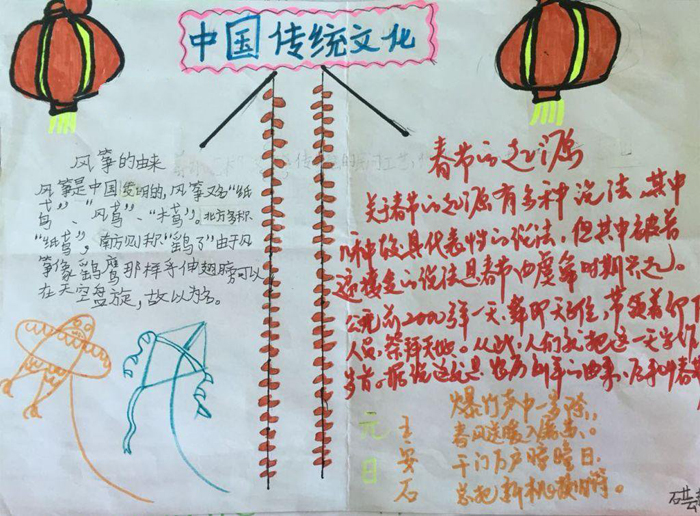 中国传统文化
风筝的由来
风筝是中国发明的,风筝又名“纸
鸢”、“风鸢”、“木鸢”。北方多称
“纸鸢”,南方则称“鹞子”由于风
筝像鹞鹰那样等伸翅膀可以
在天空盘旋,故以为名。
春节的起源
关于春节的起源有多种说法,其中
几种较具代表性的说法,但其中被普
遍接受的说法是春节由虞舜时期兴起。
公元前2000多年一天,舜即天子位,带领着
人员,祭拜天地。从此,人们就把这一天当作
岁首。据说这就是农历新年的由来,后来叫春
元日
王安石
爆竹声中一岁除,
春风送暖入屠苏。
千门万户瞳瞳日,
总把新桃换旧符。